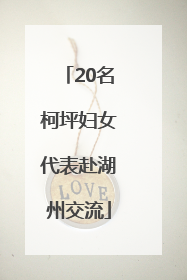 「20名
柯坪妇女
代表赴湖
LOVE
州交流」